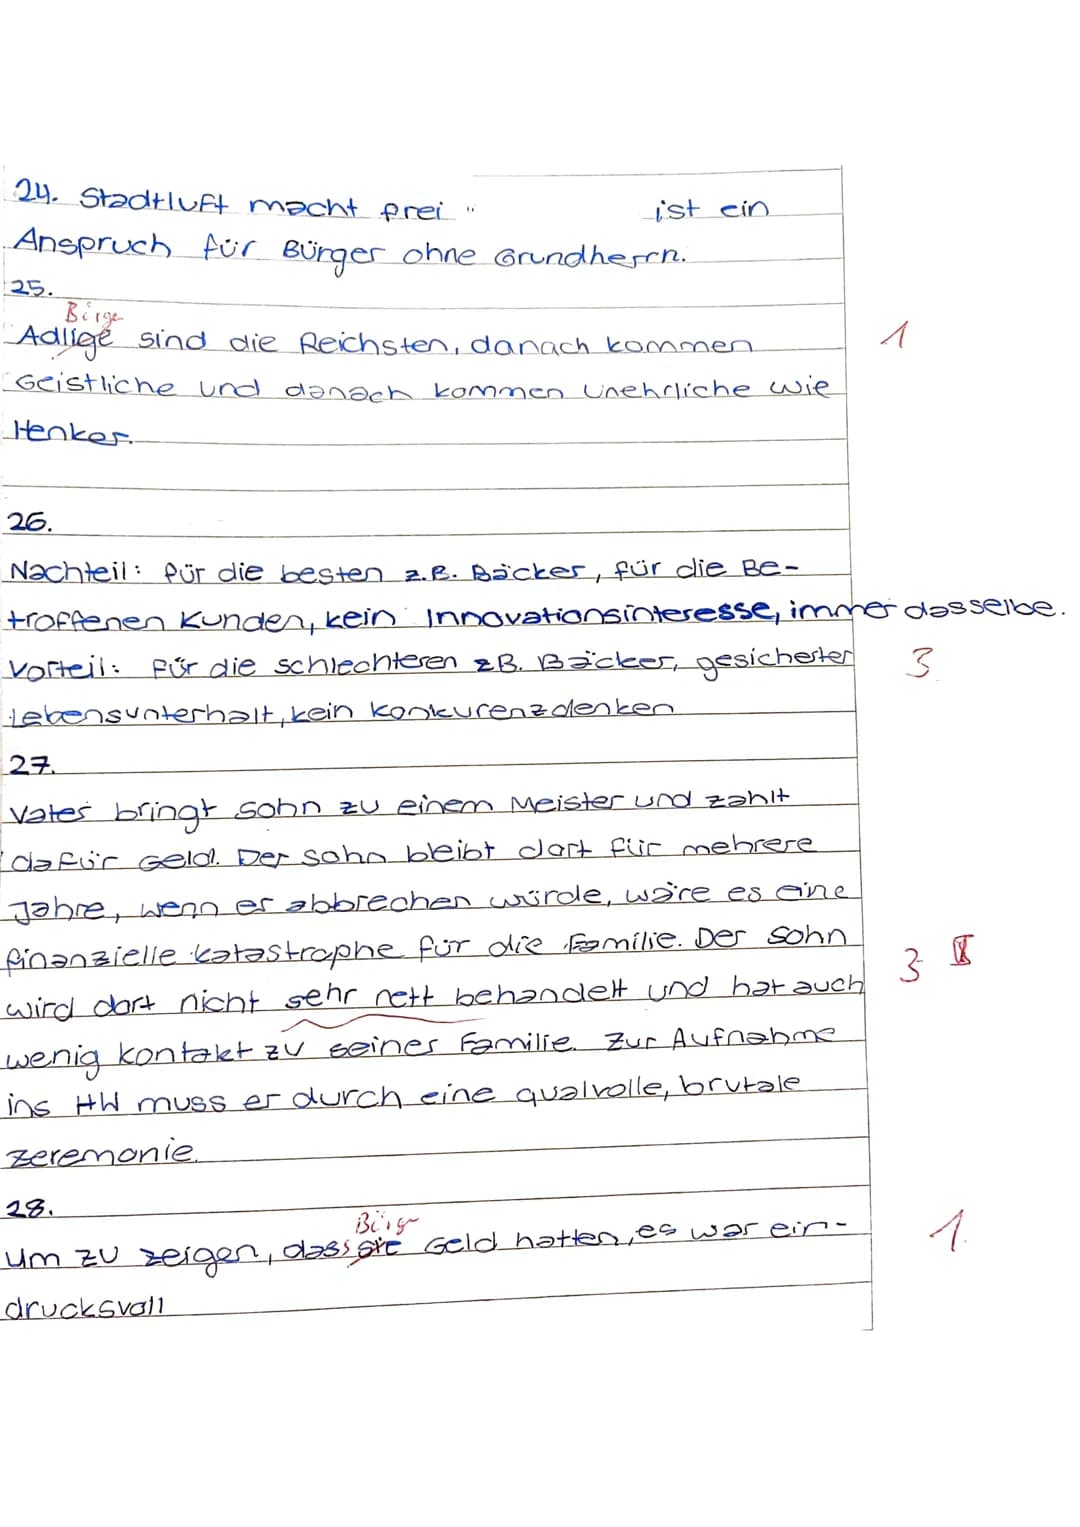 24. Stadtluft macht frei " ist ein
Anspruch für Bürger ohne Grundherrn.
25.
Bürge
Adlige sind die Reichsten, danach kommen 1
Geistliche und danach kommen Unehrliche wie
Henker.
26.
Nachteil: für die besten z.B. Bäcker, für die Be-
troffenen Kunden, kein Innovationsinteresse, immer dasselbe.
Vorteil: für die schlechteren z.B. Bäcker, gesicherter 3
Lebensunterhalt, kein Konkurenzdenken
27.
Vater bringt Sohn zu einem Meister und zahlt
dafür Geld. Der Sohn bleibt dort für mehrere
Jahre, wenn er abbrechen würde, wäre es eine
finanzielle Katastrophe für die Familie. Der Sohn
wird dort nicht sehr nett behandelt und hat auch 3
wenig Kontakt zu seiner Familie. Zur Aufnahme
ins HW muss er durch eine qualvolle, brutale
Zeremonie.
28.
Bürg
um zu zeigen, dass sie Geld hatten, es war ein- 1.
drucksvoll